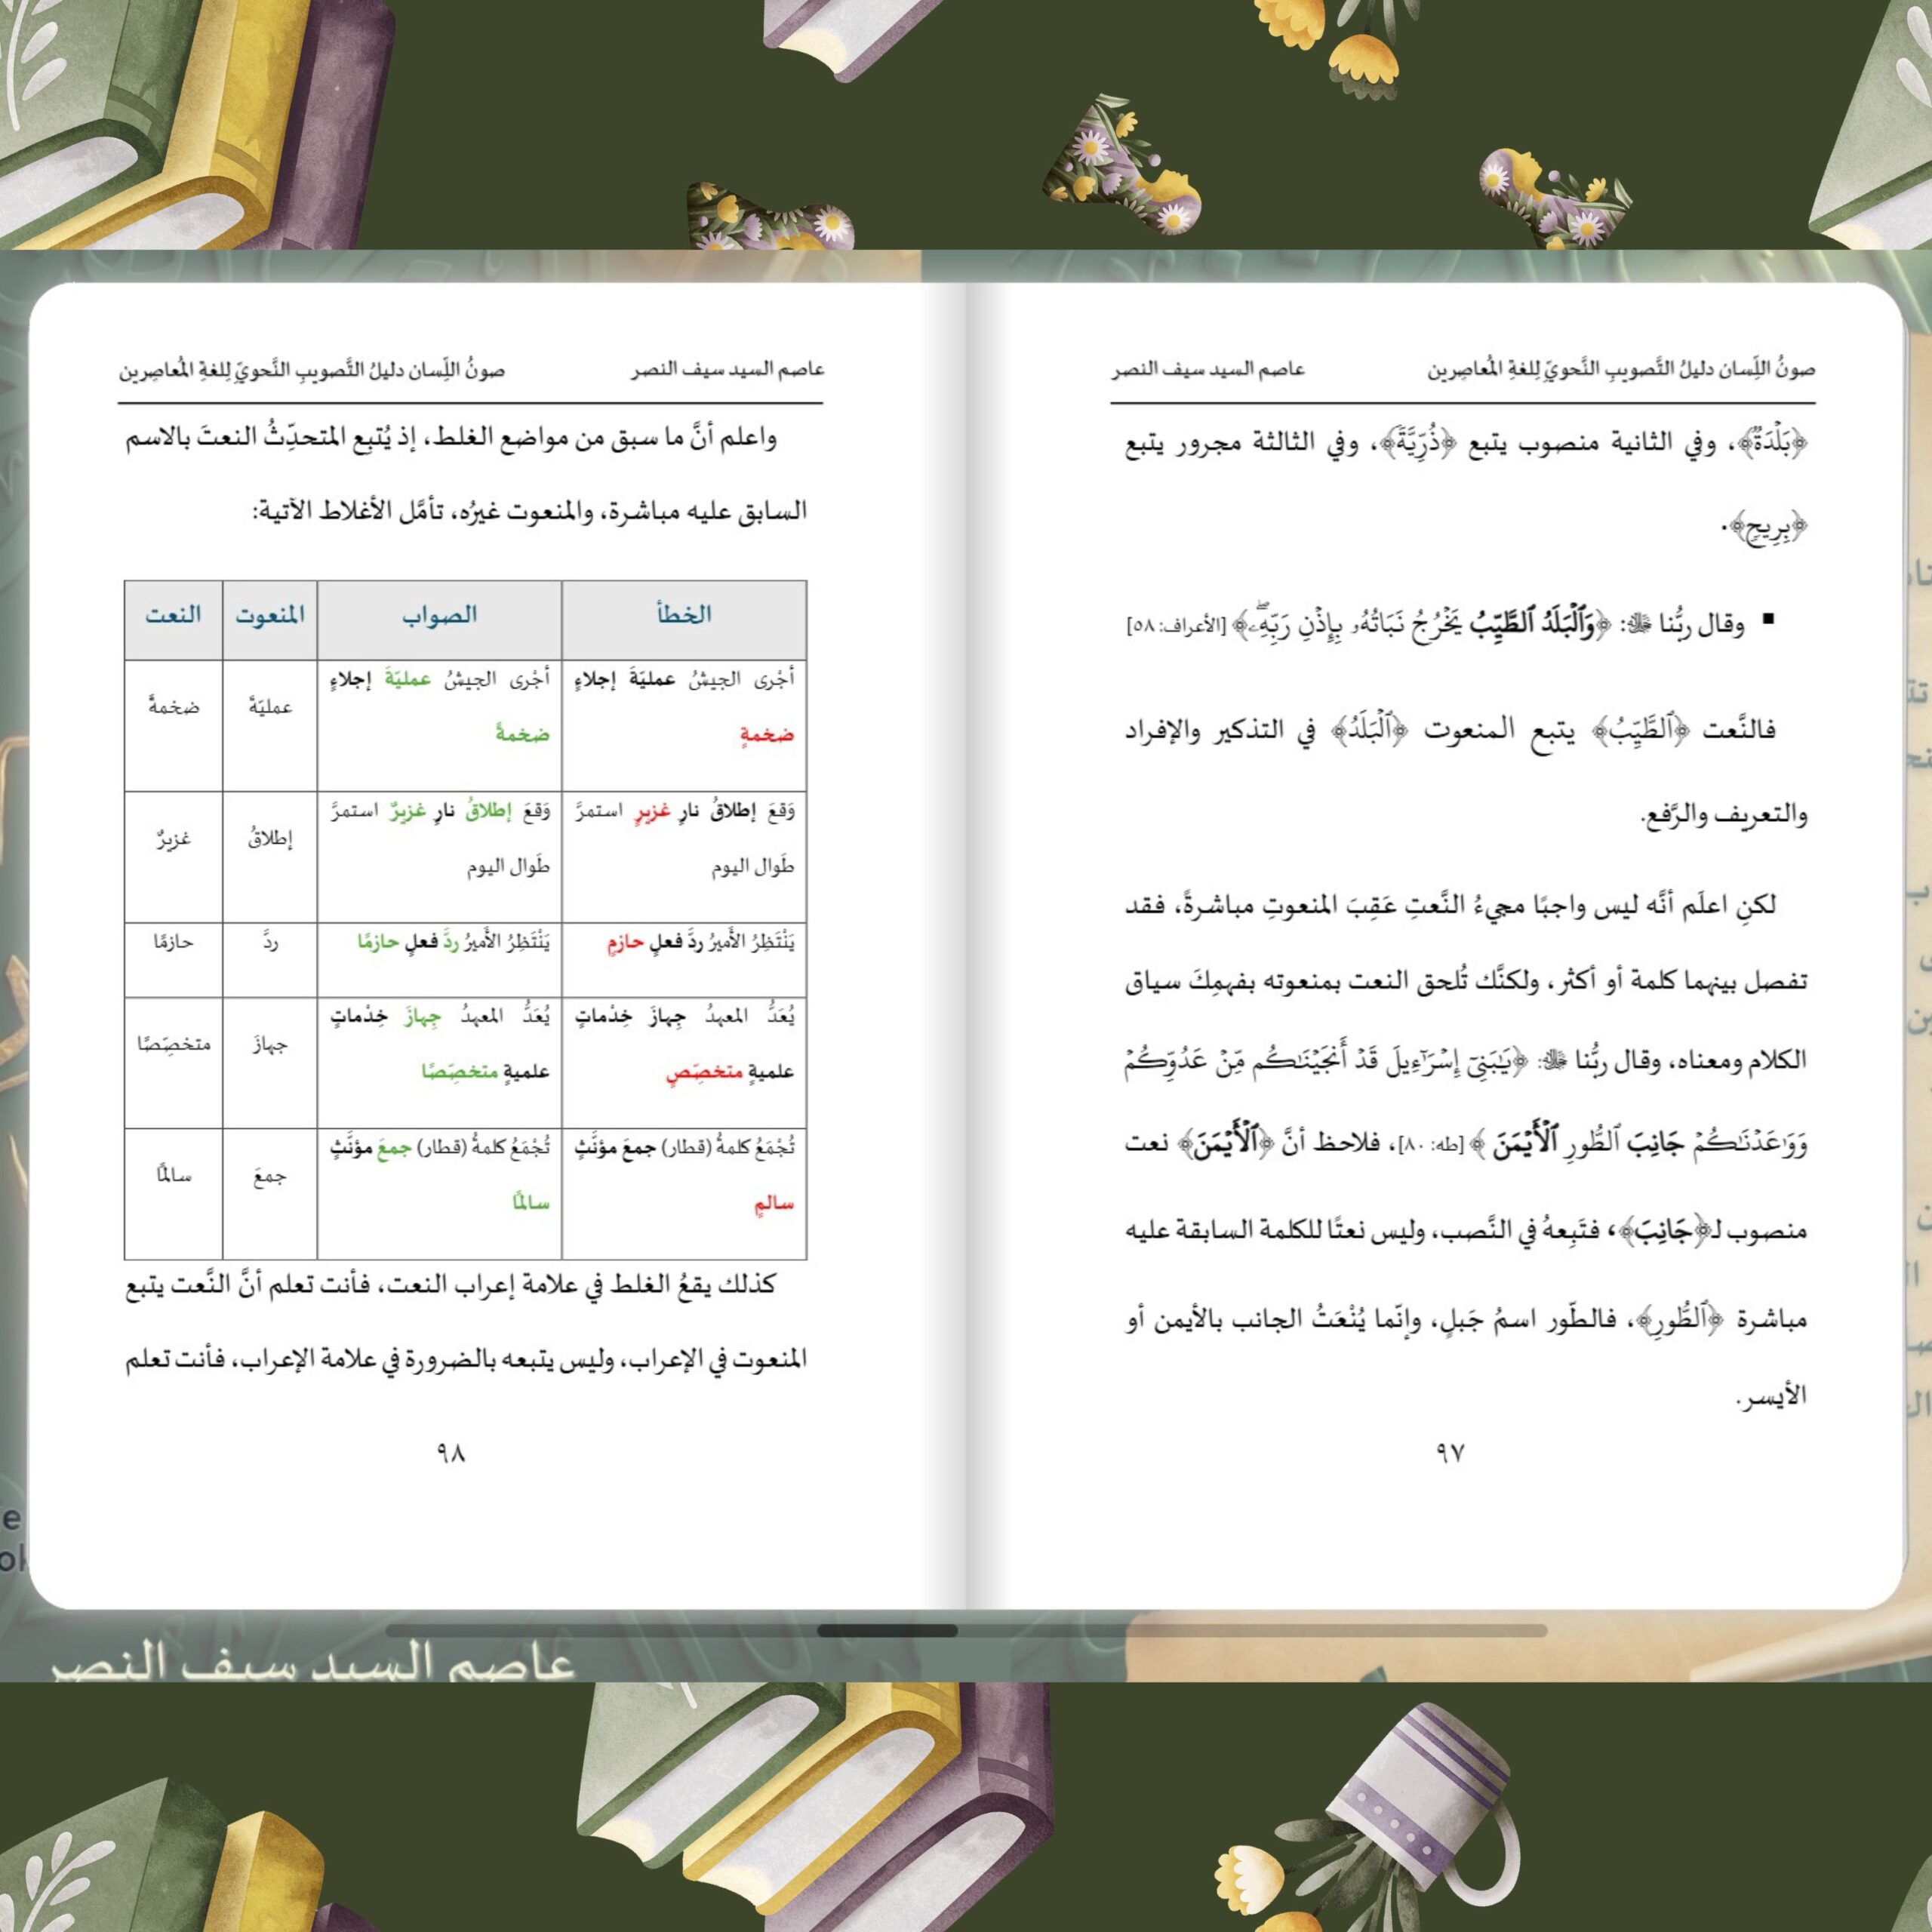 صونُ اللِّسان دليلُ التَّصويبِ النَّحويّ لِلغةِ المُعاصِرين عاصم السيد سيف النصر
﴿بَلْدَةٌ﴾، وفي الثانية منصوب يتبع ﴿ذُرِّيَّةً﴾، وفي الثالثة مجرور يتبع
﴿بِرِيحٍ﴾.
▪ وقال ربُّنا ﷻ: ﴿وَٱلْبَلَدُ ٱلطَّيِّبُ يَخْرُجُ نَبَاتُهُۥ بِإِذْنِ رَبِّهِۦۖ﴾ [الأعراف: ٥٨]
فالنَّعت ﴿ٱلطَّيِّبُ﴾ يتبع المنعوت ﴿ٱلْبَلَدُ﴾ في التذكير والإفراد
والتعريف والرَّفع.
لكنِ اعلَم أنَّه ليس واجبًا مجيءُ النَّعتِ عَقِبَ المنعوتِ مباشرةً، فقد
تفصل بينهما كلمة أو أكثر، ولكنَّك تُلحق النعت بمنعوته بفهمِكَ سياق
الكلام ومعناه، وقال ربُّنا ﷻ: ﴿يَٰبَنِىٓ إِسْرَٰٓءِيلَ قَدْ أَنجَيْنَٰكُم مِّنْ عَدُوِّكُمْ
وَوَٰعَدْنَٰكُمْ جَانِبَ ٱلطُّورِ ٱلْأَيْمَنَ ﴾ [طه: ٨٠]، فلاحظ أنَّ ﴿ٱلْأَيْمَنَ﴾ نعت
منصوب لـ﴿جَانِبَ﴾، فتَبِعهُ في النَّصب، وليس نعتًا للكلمة السابقة عليه
مباشرة ﴿ٱلطُّورِ﴾، فالطّور اسمُ جَبلٍ، وإنّما يُنْعَتُ الجانب بالأيمن أو
الأيسر.
٩٧
صونُ اللِّسان دليلُ التَّصويبِ النَّحويّ لِلغةِ المُعاصِرين عاصم السيد سيف النصر
واعلم أنَّ ما سبق من مواضع الغلط، إذ يُتبِع المتحدِّثُ النعتَ بالاسم
السابق عليه مباشرة، والمنعوت غيرُه، تأمَّل الأغلاط الآتية:
الخطأ الصواب المنعوت النعت
أجْرى الجيشُ عمليّةَ إجلاءٍ أجْرى الجيشُ عمليّةَ إجلاءٍ عمليّةَ ضخمةً
ضخمةٍ ضخمةً
وَقعَ إطلاقُ نارٍ غزيرٍ استمرَّ وَقعَ إطلاقُ نارٍ غزيرٌ استمرَّ إطلاقُ غزيرٌ
طَوال اليوم طَوال اليوم
يَنْتَظِرُ الأميرُ ردَّ فعلٍ حازمٍ يَنْتَظِرُ الأميرُ ردَّ فعلٍ حازمًا ردَّ حازمًا
يُعَدُّ المعهدُ جِهازَ خِدْماتٍ يُعَدُّ المعهدُ جِهازَ خِدْماتٍ جهازَ متخصِّصًا
علميةٍ متخصِّصٍ علميةٍ متخصِّصًا
تُجْمَعُ كلمةُ (قطار) جمعَ مؤنَّثٍ تُجْمَعُ كلمةُ (قطار) جمعَ مؤنَّثٍ جمعَ سالمًا
سالمٍ سالمًا
كذلك يقعُ الغلط في علامة إعراب النعت، فأنت تعلم أنَّ النَّعت يتبع
المنعوت في الإعراب، وليس يتبعه بالضرورة في علامة الإعراب، فأنت تعلم
٩٨
عاصم السيد سيف النصر